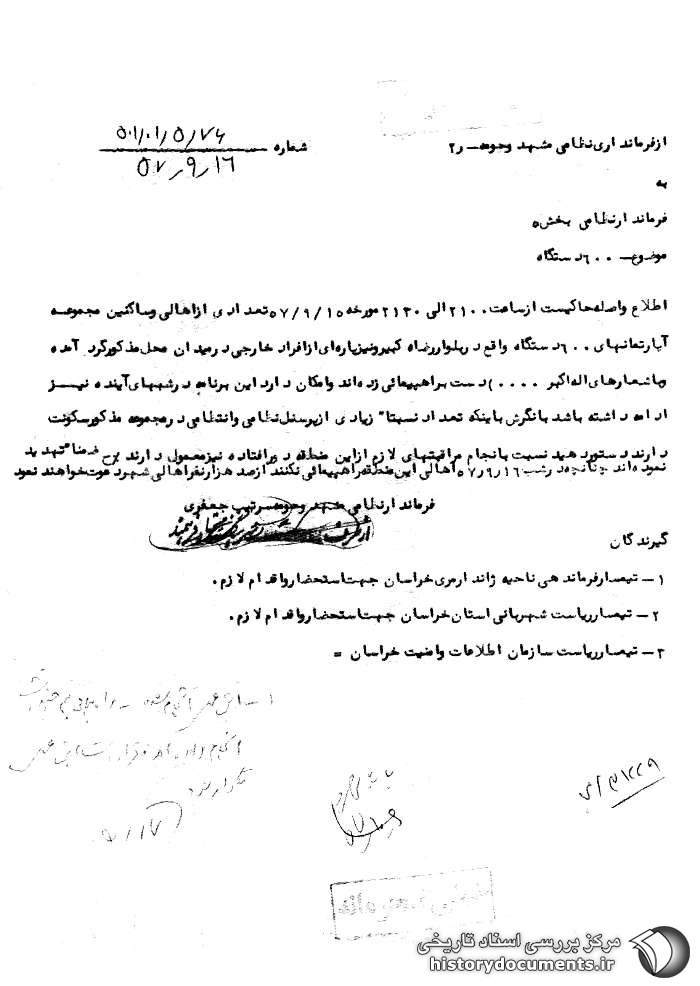 از فرمانداری نظامی مشهد و حومه - ر۲
شماره ۵۰۱/۰۱/۵/۷۴
۵۷/۹/۱۶
به
فرماندار نظامی بخش ۵
موضوع - ۶۰۰ دستگاه
اطلاع واصله حاکیست از ساعت ۲۱۰۰ الی ۲۱۳۰ مورخه ۵۷/۹/۱۵ تعدادی از اهالی و ساکنین مجموعه
آپارتمانهای ۶۰۰ دستگاه واقع در بلوار رضاشاه کبیر و نیز پاره‌ای از افراد خارجی در میدان محل مذکور گرد آمده
و با شعارهای اله اکبر ( ۰۰۰۰ ) دست براهپیمائی زده‌اند و امکان دارد این برنامه در شبهای آینده نیز
ادامه داشته باشد با نگرش باینکه تعداد نسبتا" زیادی از پرسنل نظامی و انتظامی در مجموعه مذکور سکونت
دارند دستور دهید نسبت بانجام مراقبتهای لازم از این منطقه دور افتاده نیز معمول دارند ضمنا" تهدید
نموده‌اند چنانچه در شب ۵۷/۹/۱۶ اهالی این منطقه راهپیمائی نکنند از صد هزار نفر اهالی شهر دعوت خواهند نمود
فرماندار نظامی مشهد و حومه سرتیپ جعفری
از طرف
گیرندگان
۱ - تیمسار فرماندهی ناحیه ژاندارمری خراسان جهت استحضار و اقدام لازم.
۲ - تیمسار ریاست شهربانی استان خراسان جهت استحضار و اقدام لازم.
۳ - تیمسار ریاست سازمان اطلاعات و امنیت خراسان =
مرکز بررسی اسناد تاریخی
historydocuments.ir